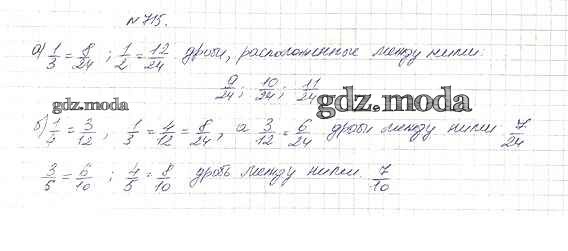 № 715.
а) 1/3 = 8/24 ; 1/2 = 12/24 дроби, расположенные между ними:
9/24 ; 10/24 ; 11/24
gdz.moda
gdz.moda
б) 1/4 = 3/12 , 1/3 = 4/12 = 8/24 , а 3/12 = 6/24 дробь между ними 7/24
3/5 = 6/10 ; 4/5 = 8/10 дробь между ними. 7/10